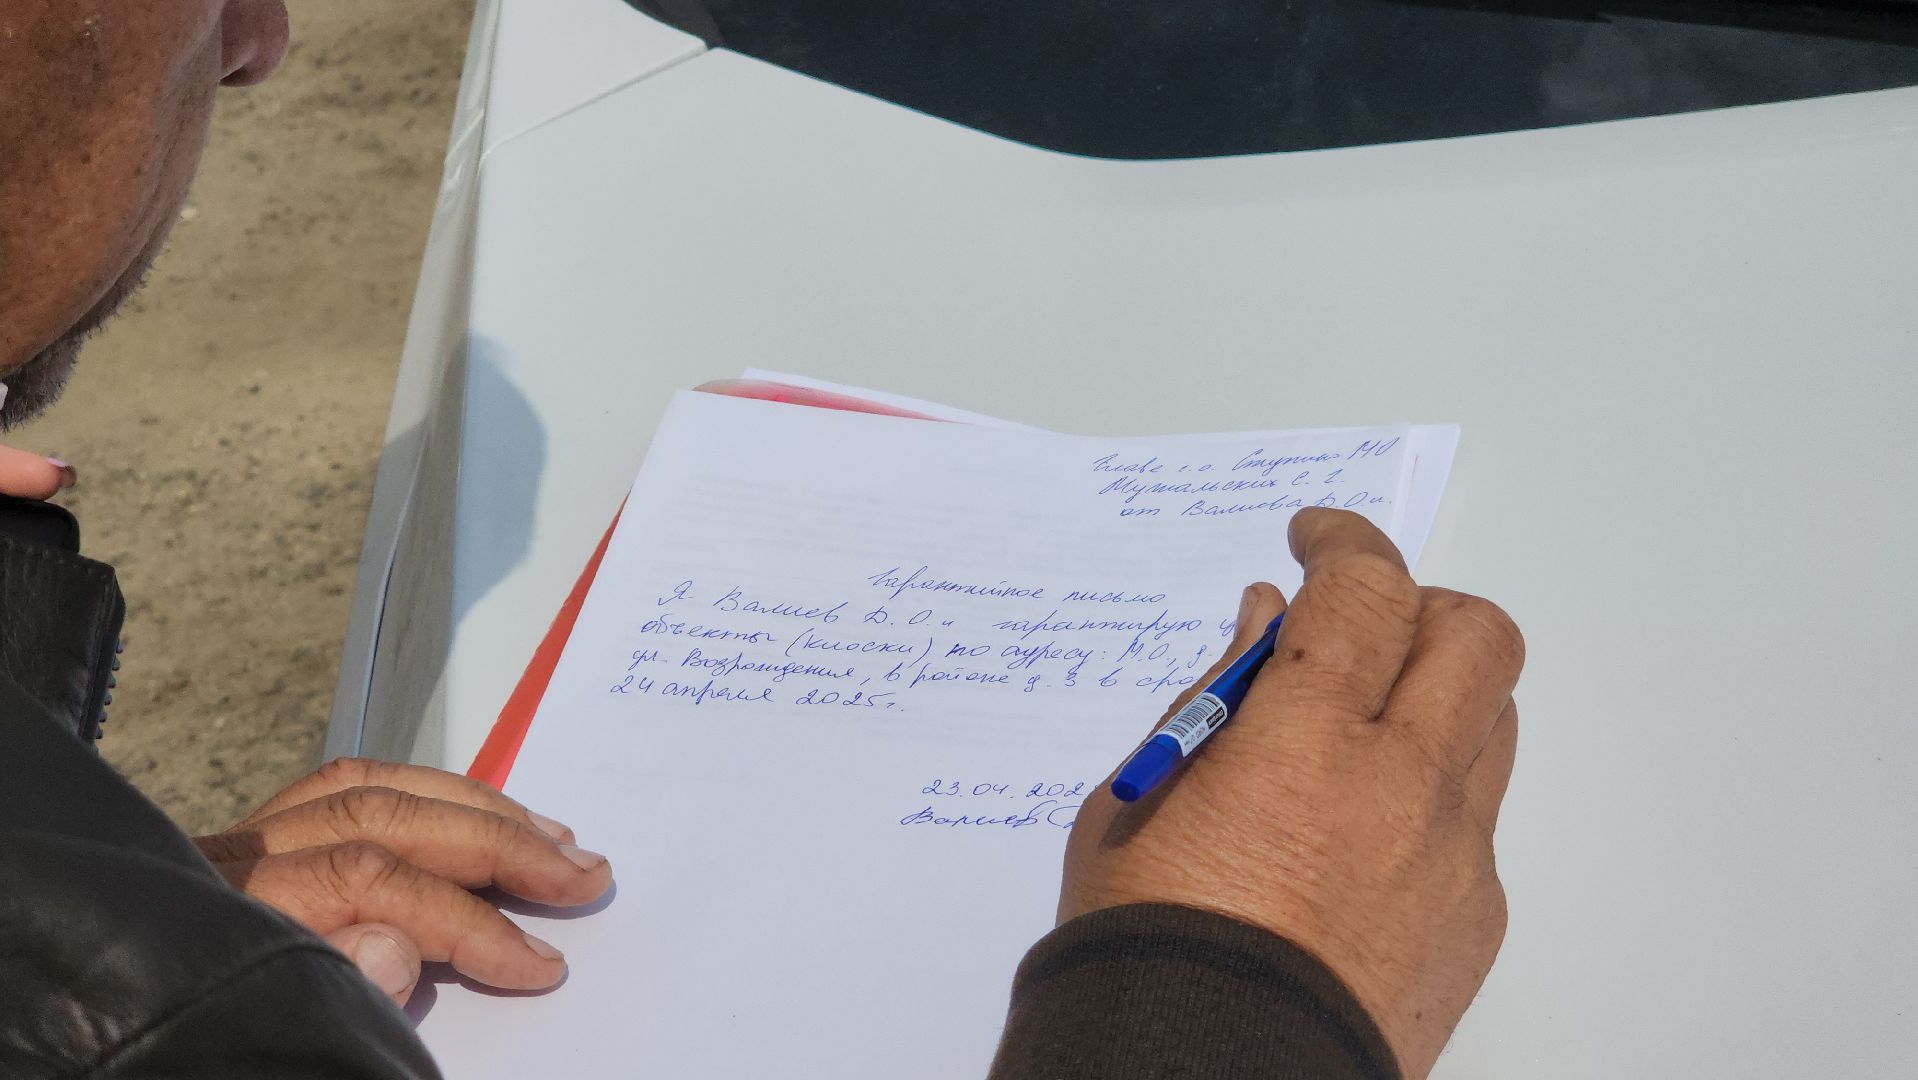 Главе г.о. Ступино МО
Мужальских С. Г.
от Валиева Д.О.и.
Гарантийное письмо
Я Валиев Д. О.и гарантирую
объекты (киоски) по адресу: М.О., д.
ул. Возрождения, в районе д. 3 в
24 апреля 2025г.
23.04.202
Валиев